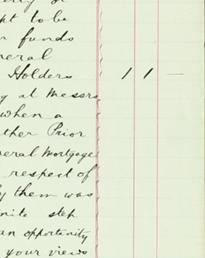 pt to be
funds
eneral
Holders 1 1 —
y at Messrs
when a
ther Prior
neral Mortgage
respect of
ly them was
nite step
an opportunity
your views